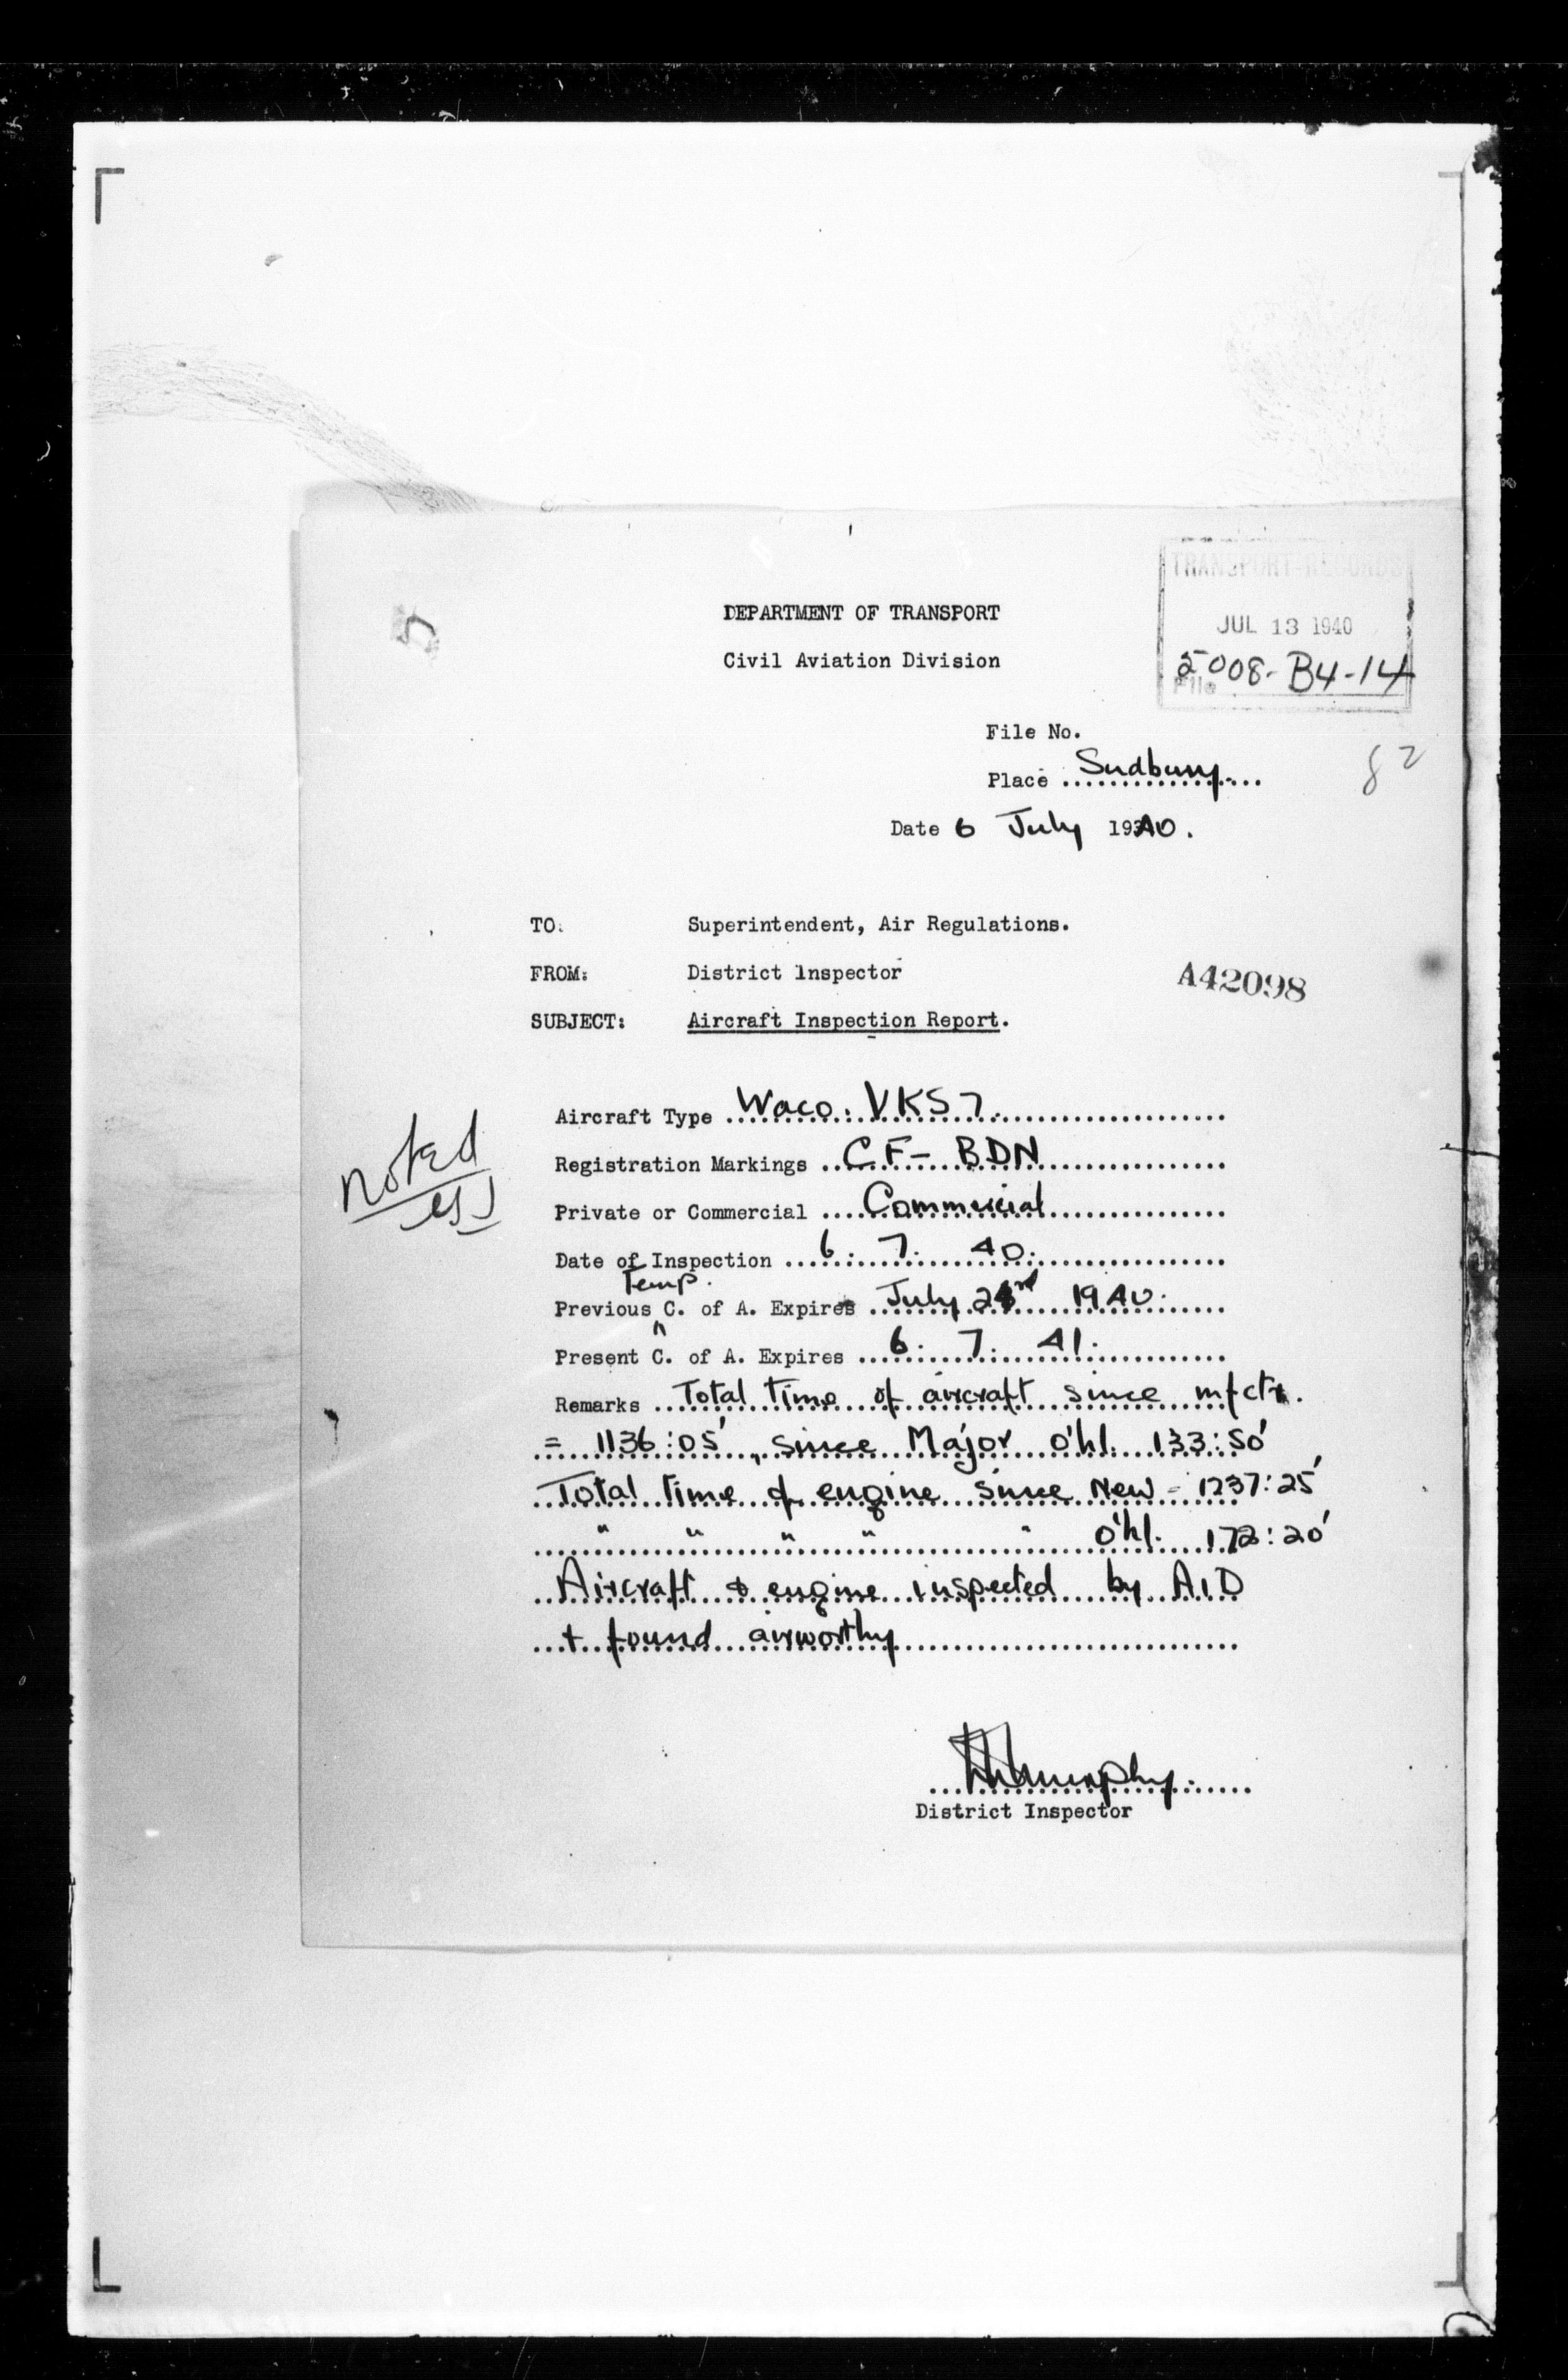 TRANSPORT-RECORDS
JUL 13 1940
5008-B4-14
File
DEPARTMENT OF TRANSPORT
Civil Aviation Division
File No.
Place Sudbury
82
Date 6 July 1940.
TO: Superintendent, Air Regulations.
FROM: District Inspector
A42098
SUBJECT: Aircraft Inspection Report.
Aircraft Type Waco. VKS 7.
noted
Registration Markings CF- BDN
Private or Commercial Commercial
Date of Inspection 6. 7. 40.
Temp.
Previous C. of A. Expires July 23rd 1940.
Present C. of A. Expires 6. 7. 41.
Remarks Total time of aircraft since mfctr.
= 1136:05', since Major o'hl. 133:50'
Total time of engine since New - 1237:25'
" " " " " o'hl. 172:20'
Aircraft & engine inspected by AID
+ found airworthy
Murphy.
District Inspector